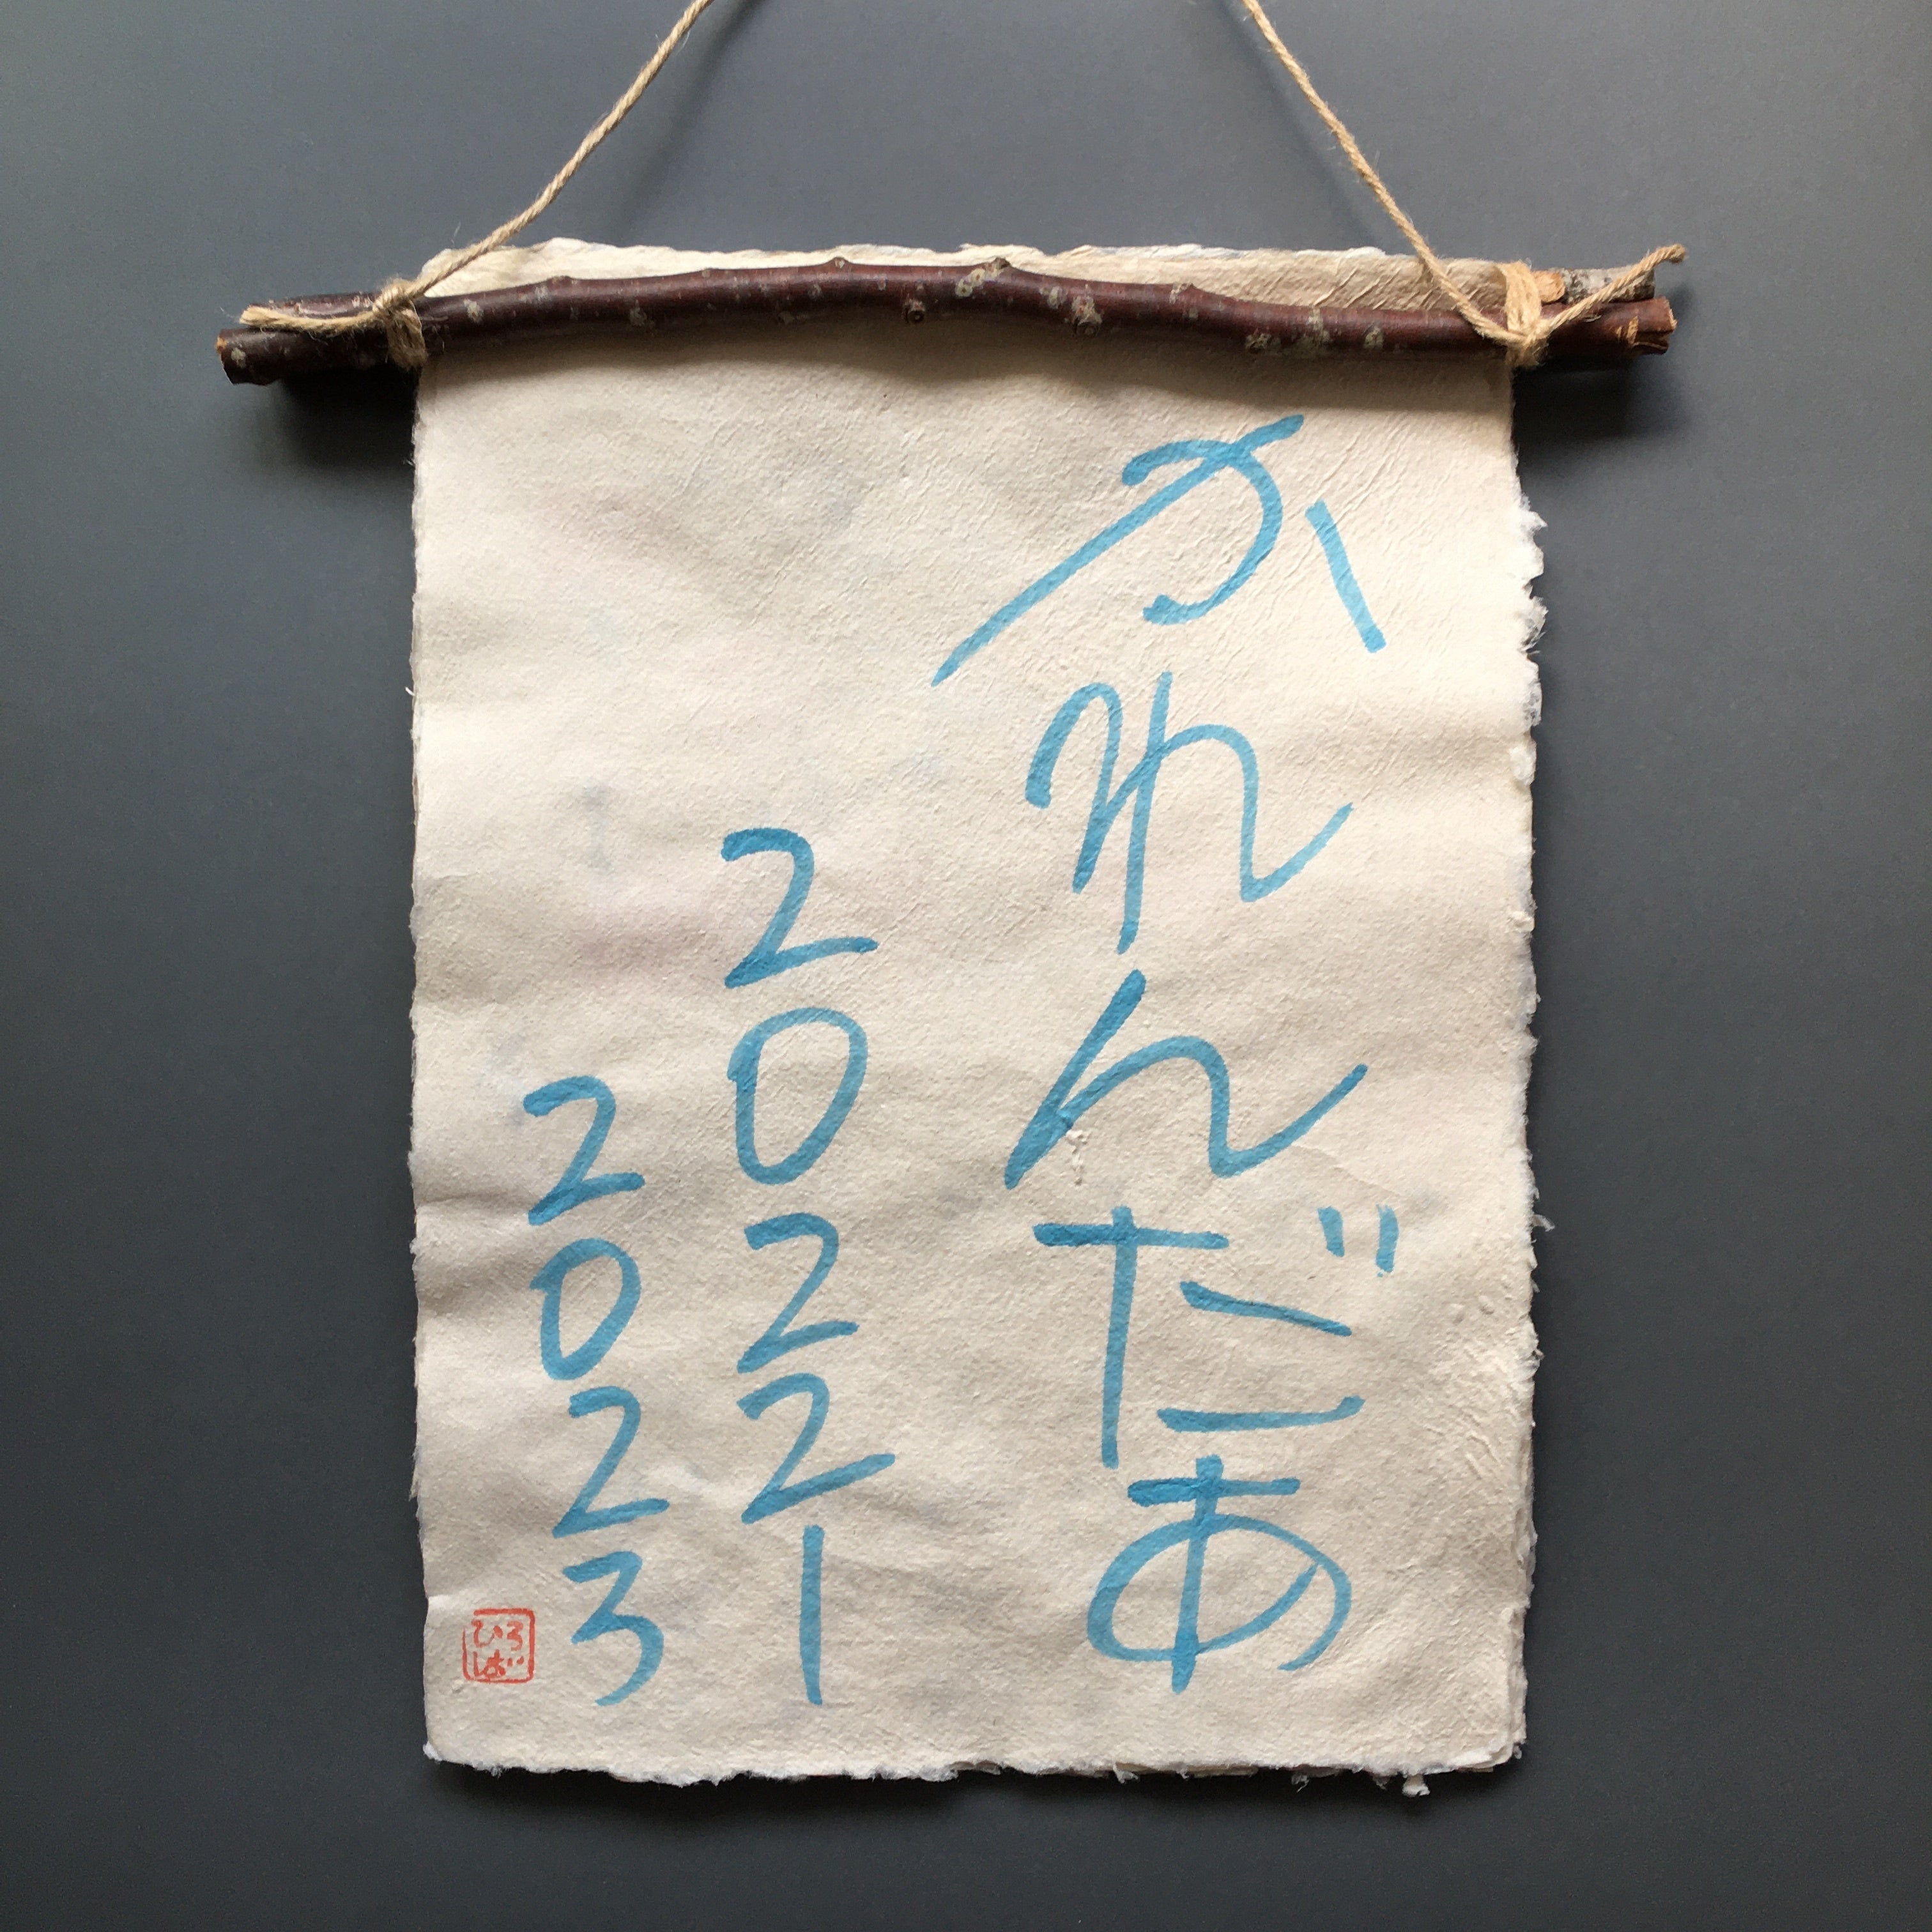 かれんだあ
20221
2023
ひろば